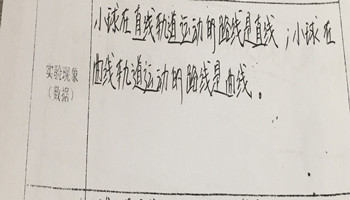 小球在直线轨道运动的路线是直线；小球在
曲线轨道运动的路线是曲线。
实验现象
（数据）